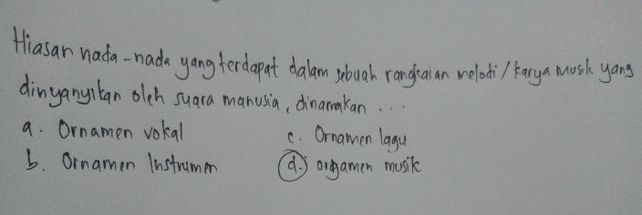 Hiasan nada-nada yang terdapat dalam sebuah rangkaian melodi/karya musik yang
dinyanyikan oleh suara manusia, dinamakan ...
a. Ornamen vokal
c. Ornamen lagu
b. Ornamen Instrumen
d. orgamen musik